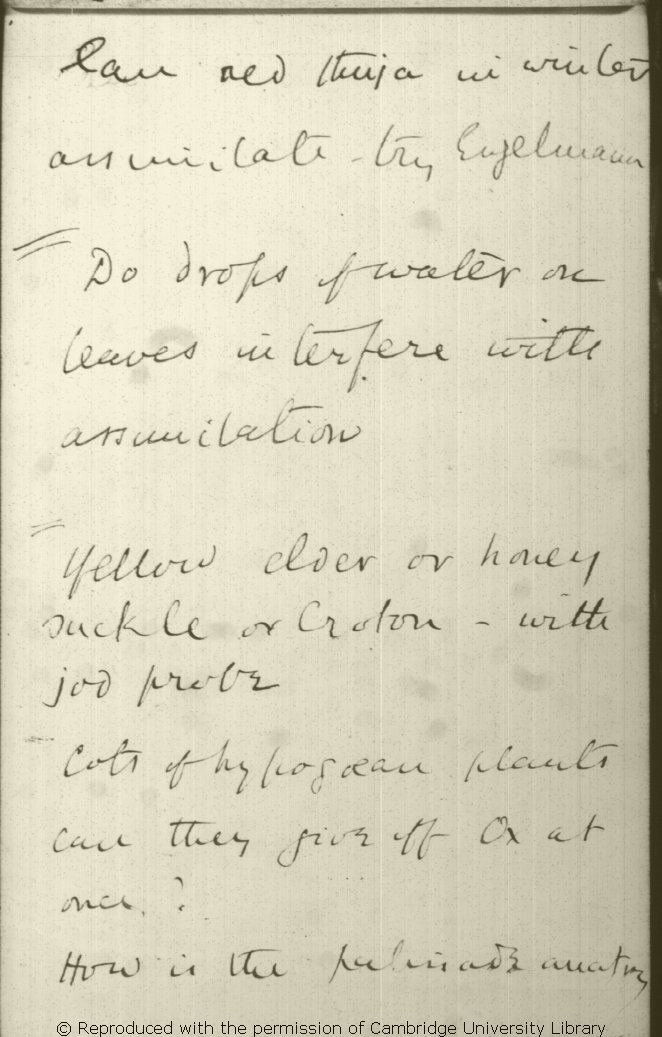 Can red thuja in winter
assimilate - try Engelmann
Do drops of water on
leaves interfere with
assimilation
Yellow elder or honey
suckle or Croton - with
jod probe
Cots of hypogœan plants
can they give off Ox at
once ?
How is the palisade anatomy
© Reproduced with the permission of Cambridge University Library